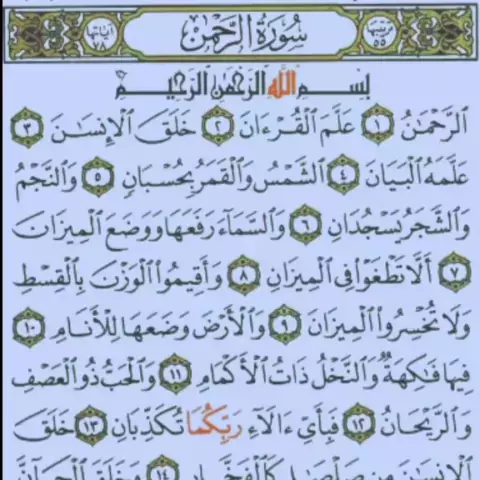 ترتيبها ٥٥ سُورَةُ الرَّحْمَٰن آياتها ٧٨
بِسْمِ اللَّهِ الرَّحْمَٰنِ الرَّحِيمِ
الرَّحْمَٰنُ ١ عَلَّمَ الْقُرْءَانَ ٢ خَلَقَ الْإِنسَٰنَ ٣
عَلَّمَهُ الْبَيَانَ ٤ الشَّمْسُ وَالْقَمَرُ بِحُسْبَانٍ ٥ وَالنَّجْمُ
وَالشَّجَرُ يَسْجُدَانِ ٦ وَالسَّمَآءَ رَفَعَهَا وَوَضَعَ الْمِيزَانَ
٧ أَلَّا تَطْغَوْا فِي الْمِيزَانِ ٨ وَأَقِيمُوا الْوَزْنَ بِالْقِسْطِ
وَلَا تُخْسِرُوا الْمِيزَانَ ٩ وَالْأَرْضَ وَضَعَهَا لِلْأَنَامِ ١٠
فِيهَا فَٰكِهَةٌ وَالنَّخْلُ ذَاتُ الْأَكْمَامِ ١١ وَالْحَبُّ ذُو الْعَصْفِ
وَالرَّيْحَانُ ١٢ فَبِأَيِّ ءَالَآءِ رَبِّكُمَا تُكَذِّبَانِ ١٣ خَلَقَ
الْإِنسَٰنَ مِن صَلْصَٰلٍ كَالْفَخَّارِ ١٤ وَخَلَقَ الْجَآنَّ